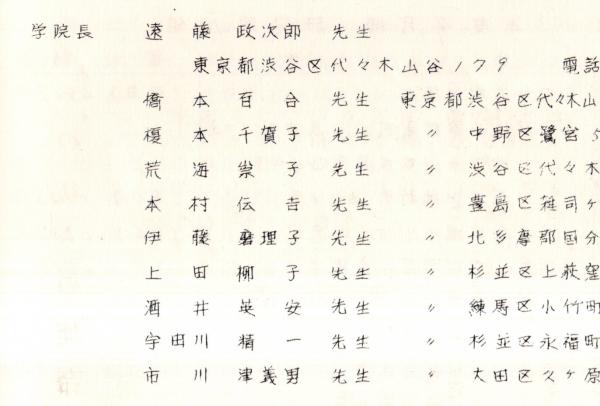 学院長 遠藤政次郎 先生
東京都渋谷区代々木山谷179 電話
橋本百合 先生 東京都渋谷区代々木山
榎本千賀子 先生 〃 中野区鷺宮5
荒海崇子 先生 〃 渋谷区代々木
本村伝吉 先生 〃 豊島区雑司ヶ
伊藤磨理子 先生 〃 北多摩郡国分
上田柳子 先生 〃 杉並区上荻窪
酒井英安 先生 〃 練馬区小竹町
宇田川精一 先生 〃 杉並区永福町
市川津義男 先生 〃 大田区久ヶ原